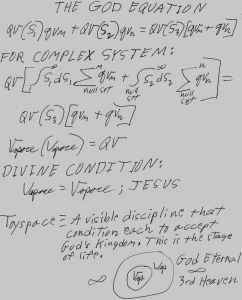 THE GOD EQUATION
QV(S₁)qvm + QV(S₂)qvn = QV(S₃)[qvm + qvn]
FOR COMPLEX SYSTEM:
QV[∫S₁dS₁ ∞ ∑qvm m null set + ∫S₂dS₂ ∞ ∑qvn n null set] =
QV(S₃)[qvm + qvn]
(Vspace) = QV
DIVINE CONDITION:
Vspace = Vspace; JESUS
Toyspace ≡ A visible discipline that
condition each to accept
God's Kingdom. This is the stage
of life.
God Eternal
∞ ∞
3rd Heaven